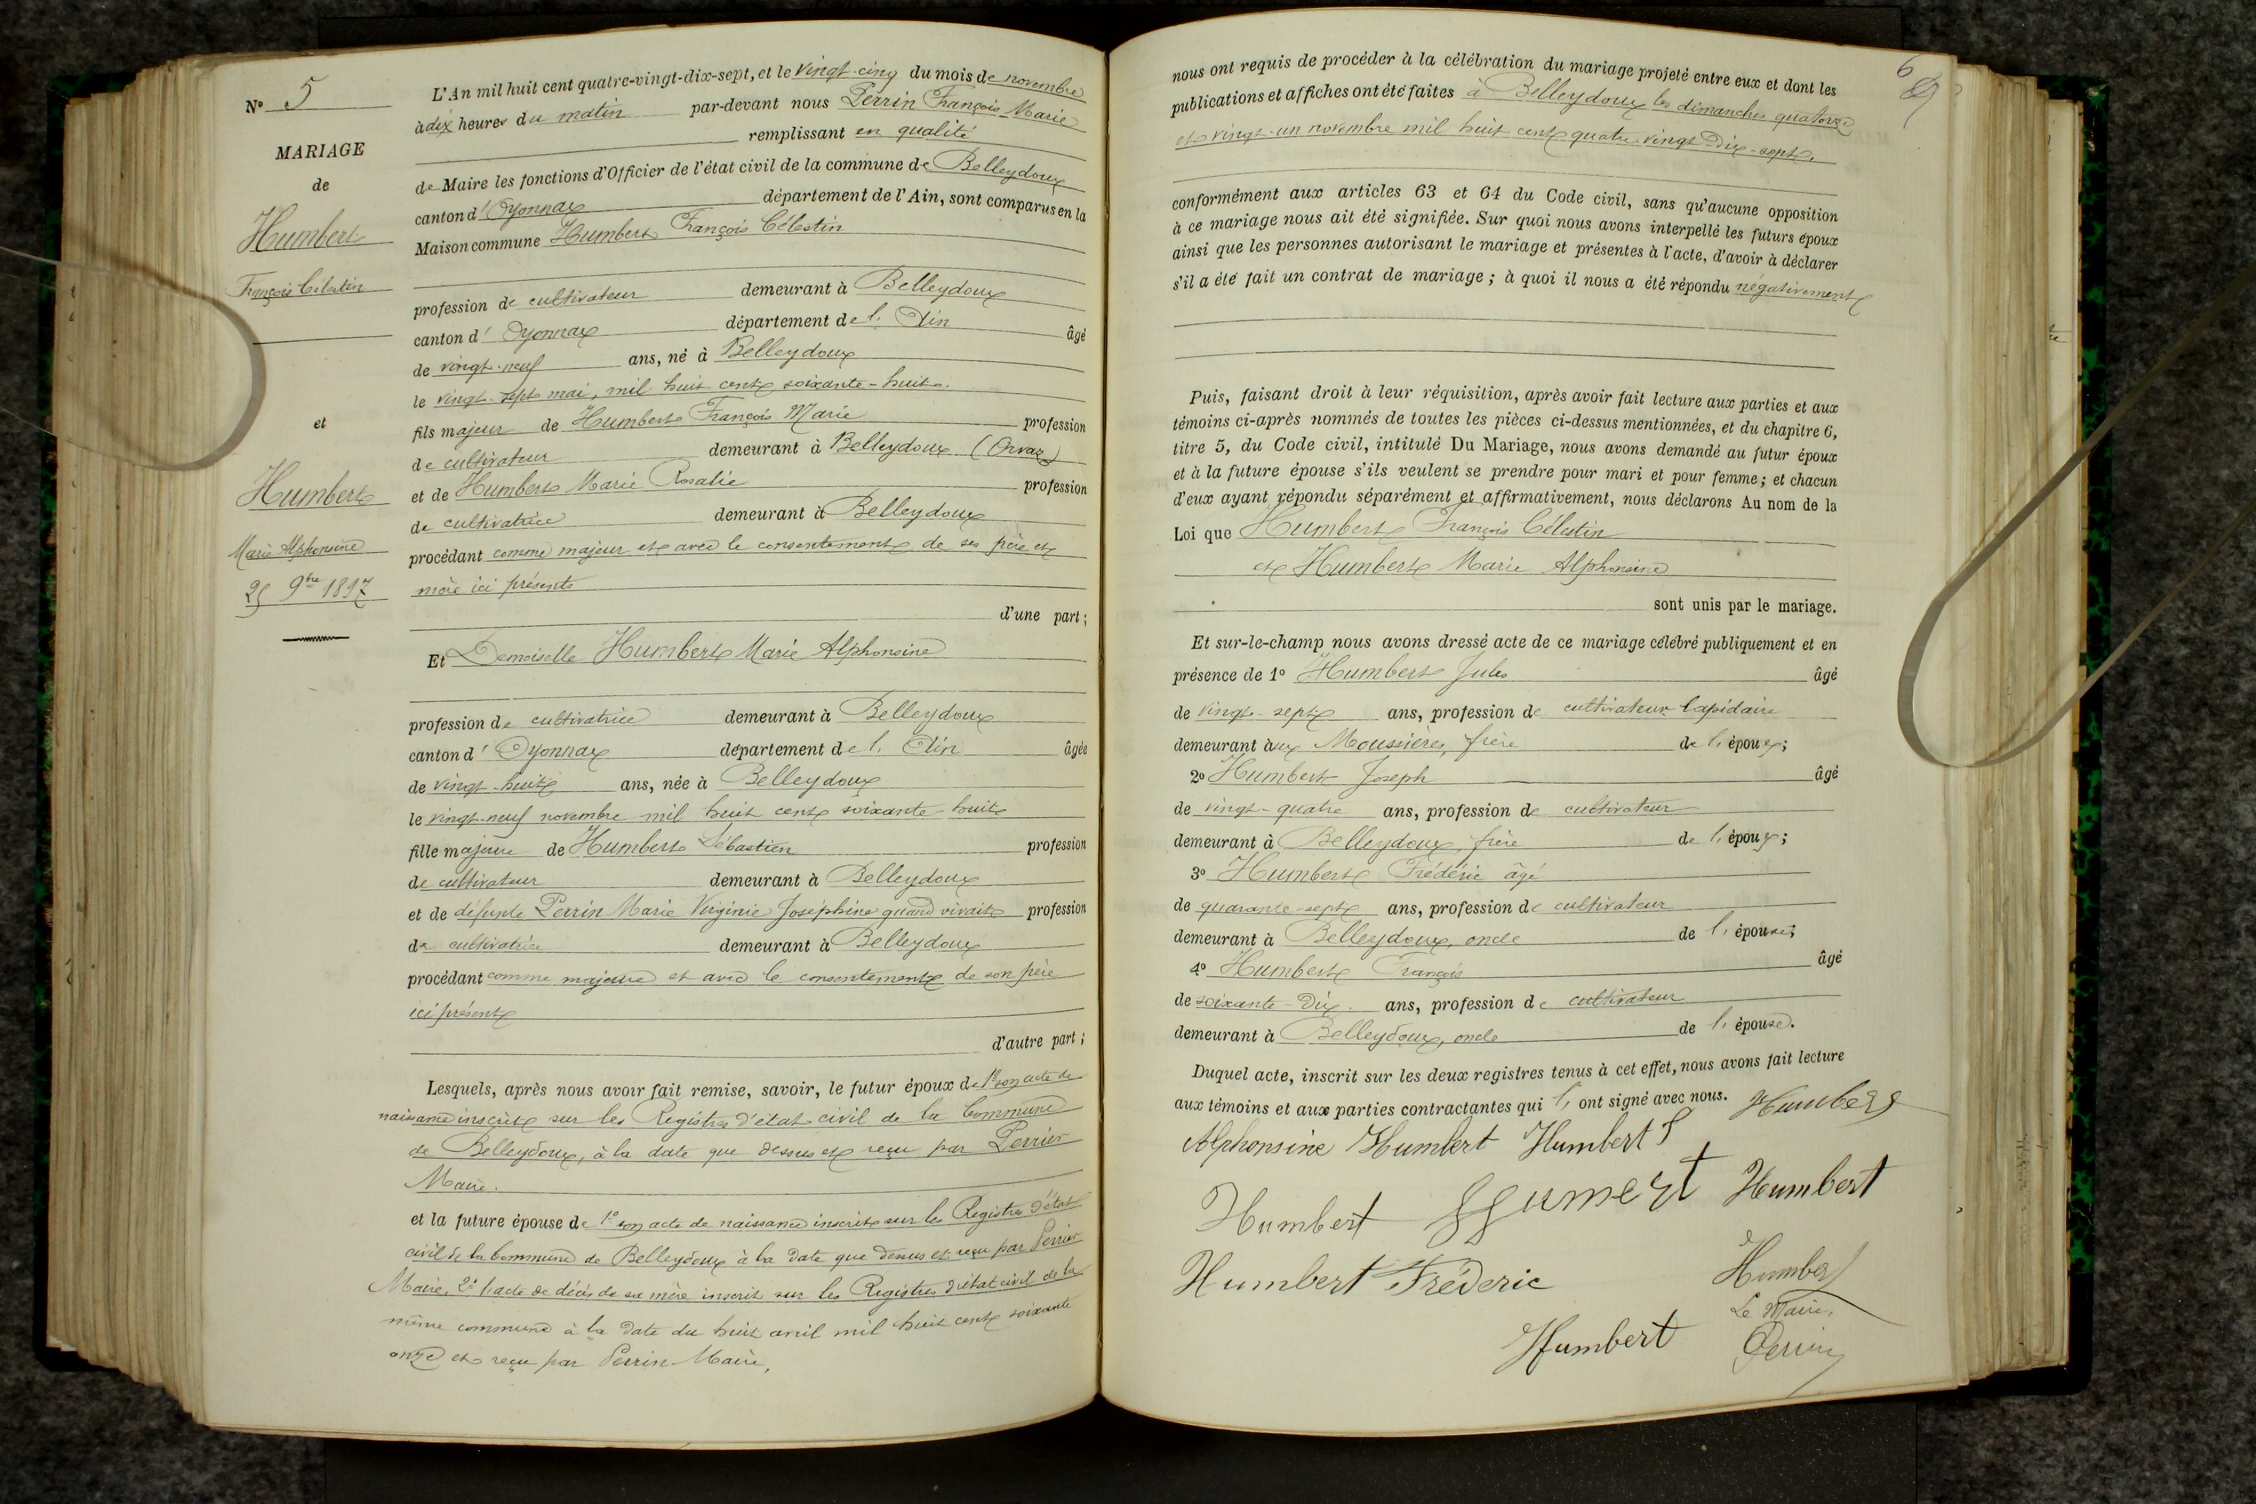 N° 5
MARIAGE
de
Humbert
François Célestin
et
Humbert
Marie Alphonsine
25 9bre 1897
L'An mil huit cent quatre-vingt-dix-sept, et le vingt-cinq du mois de novembre
à dix heures du matin par-devant nous Perrin François Marie
remplissant en qualité
de Maire les fonctions d'Officier de l'état civil de la commune de Belleydoux
canton d'Oyonnax département de l'Ain, sont comparus en la
Maison commune Humbert François Célestin
profession de cultivateur demeurant à Belleydoux
canton d'Oyonnax département de l'Ain âgé
de vingt-neuf ans, né à Belleydoux
le vingt-sept mai, mil huit cent soixante-huit.
fils majeur de Humbert François Marie profession
de cultivateur demeurant à Belleydoux (Orvaz)
et de Humbert Marie Rosalie profession
de cultivatrice demeurant à Belleydoux
procédant comme majeur et avec le consentement de ses père et
mère ici présents
d'une part;
Et Demoiselle Humbert Marie Alphonsine
profession de cultivatrice demeurant à Belleydoux
canton d'Oyonnax département de l'Ain âgée
de vingt-huit ans, née à Belleydoux
le vingt-neuf novembre mil huit cent soixante-huit
fille majeure de Humbert Sébastien profession
de cultivateur demeurant à Belleydoux
et de défunte Perrin Marie Virginie Joséphine quand vivait profession
de cultivatrice demeurant à Belleydoux
procédant comme majeure et avec le consentement de son père
ici présent
d'autre part;
Lesquels, après nous avoir fait remise, savoir, le futur époux de 1° son acte de
naissance inscrit sur les Registres d'état civil de la Commune
de Belleydoux, à la date que dessus et reçu par Perrier
Maire.
et la future épouse de 1° son acte de naissance inscrit sur les Registres d'état
civil de la Commune de Belleydoux à la date que dessus et reçu par Perrier
Maire, 2° l'acte de décès de sa mère inscrit sur les Registres d'état civil de la
même commune à la date du huit avril mil huit cent soixante
onze et reçu par Perrin Maire,
6
nous ont requis de procéder à la célébration du mariage projeté entre eux et dont les
publications et affiches ont été faites à Belleydoux les dimanches quatorze
et vingt-un novembre mil huit cent quatre-vingt Dix-sept.
conformément aux articles 63 et 64 du Code civil, sans qu'aucune opposition
à ce mariage nous ait été signifiée. Sur quoi nous avons interpellé les futurs époux
ainsi que les personnes autorisant le mariage et présentes à l'acte, d'avoir à déclarer
s'il a été fait un contrat de mariage; à quoi il nous a été répondu négativement
Puis, faisant droit à leur réquisition, après avoir fait lecture aux parties et aux
témoins ci-après nommés de toutes les pièces ci-dessus mentionnées, et du chapitre 6,
titre 5, du Code civil, intitulé Du Mariage, nous avons demandé au futur époux
et à la future épouse s'ils veulent se prendre pour mari et pour femme; et chacun
d'eux ayant répondu séparément et affirmativement, nous déclarons Au nom de la
Loi que Humbert François Célestin
et Humbert Marie Alphonsine
sont unis par le mariage.
Et sur-le-champ nous avons dressé acte de ce mariage célébré publiquement et en
présence de 1° Humbert Jules âgé
de vingt-sept ans, profession de cultivateur lapidaire
demeurant aux Moussières, frère de l'époux;
2° Humbert Joseph âgé
de vingt-quatre ans, profession de cultivateur
demeurant à Belleydoux, frère de l'époux;
3° Humbert Frédéric âgé
de quarante-sept ans, profession de cultivateur
demeurant à Belleydoux, oncle de l'épouse;
4° Humbert François âgé
de soixante-Dix ans, profession de cultivateur
demeurant à Belleydoux, oncle de l'épouse.
Duquel acte, inscrit sur les deux registres tenus à cet effet, nous avons fait lecture
aux témoins et aux parties contractantes qui l, ont signé avec nous. Humbert
Alphonsine Humbert Humbert
Humbert Humbert
Humbert Fréderic Humbert
Le Maire,
Humbert Perrin